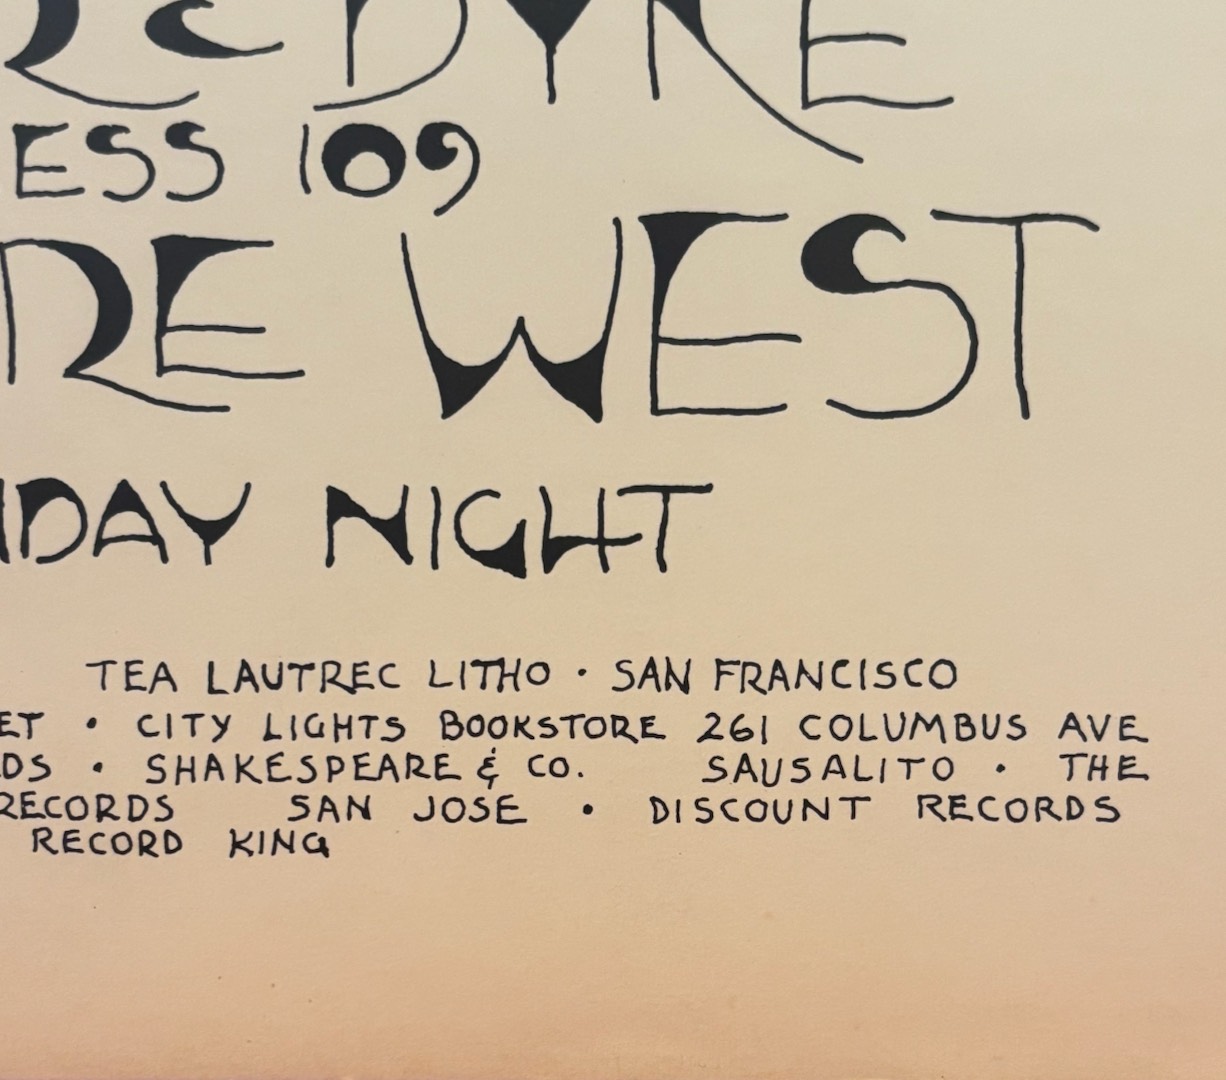 RC DYKE
ESS 109
RE WEST
DAY NIGHT
TEA LAUTREC LITHO · SAN FRANCISCO
ET · CITY LIGHTS BOOKSTORE 261 COLUMBUS AVE
DS · SHAKESPEARE & CO. SAUSALITO · THE
RECORDS SAN JOSE · DISCOUNT RECORDS
RECORD KING